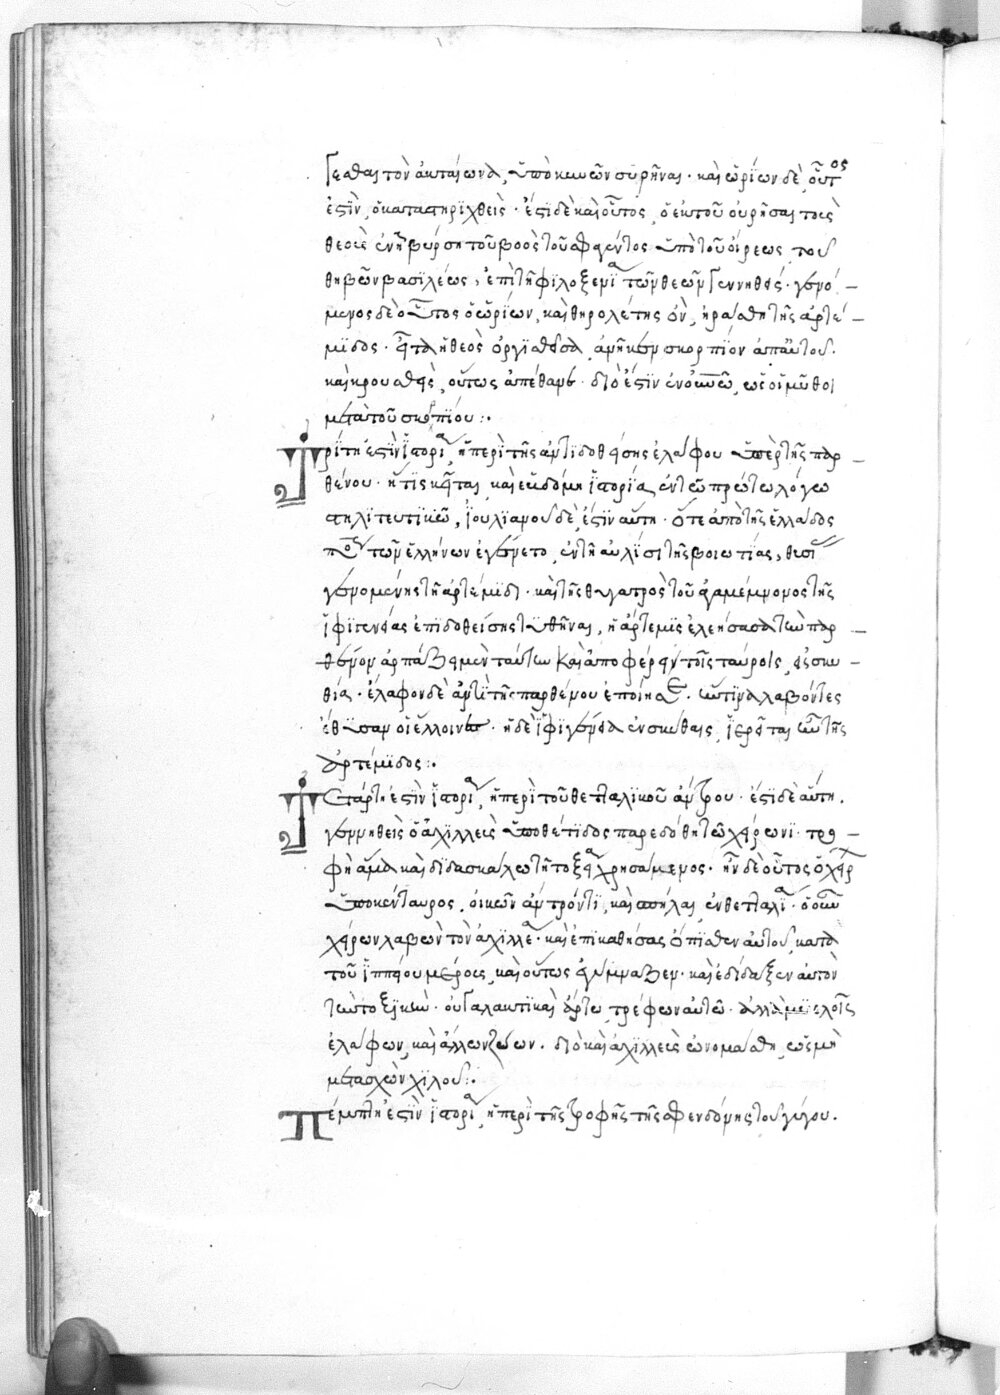 γεσθαι τὸν ἀκταίωνα, ὑπὸ κυνῶν εὑρῆναι· καὶ ὠρίων δὲ οὗτος
ἐστὶν, ὁ καταστηριχθεὶς· ἐστὶ δὲ καὶ οὗτος, ὁ ἐκ τοῦ οὐρῆσαι τοὺς
θεοὺς ἐν τῆ βύρση τοῦ βοὸς τοῦ σφαγέντος ὑπὸ τοῦ οἰρέως, τοῦ
θηβῶν βασιλέως, ἐπὶ τῆ φιλοξενία τῶν θεῶν γεννηθείς· γενό-
μενος δὲ οὗτος ὁ ὠρίων, καὶ θηρολέτης ὢν, ἠράσθη τῆς ἀρτέ-
μιδος· εἶτα ἡ θεὸς ὀργισθεῖσα, ἀνῆκεν σκορπίον ἀπ' αὐτοῦ.
καὶ κρουσθεὶς, οὕτως ἀπέθανε· διὸ ἐστὶν ἐν οὐρανῶ, ὡς οἱ μῦθοι
μετὰ τοῦ σκορπίου:·
Τρίτη ἐστὶν ἱστορία, ἡ περὶ τῆς ἀντιδοθείσης ἐλάφου ὑπὲρ τῆς παρ-
θένου· ἥτις κεῖται, καὶ ἑβδόμη ἱστορία, ἐν τῶ πρώτω λόγω
στηλιτευτικῶ, ἰουλιανοῦ δὲ ἐστὶν αὕτη· ὅτε ἀπὸ τῆς ἑλλάδος
τῶν ἑλλήνων ἐγένετο, ἐν τῆ αὐλίδι τῆς βοιωτίας, θυσίας
γενομένης τῆ ἀρτέμιδι· καὶ τῆς θυγατρὸς τοῦ ἀγαμέμνονος τῆς
ἰφιγενείας ἐπιδοθείσης τυθῆναι, ἡ ἄρτεμις ἐλεήσασα τὴν παρ-
θένον ἁρπάζει μὲν ταύτην καὶ ἀποφέρει ἐν τοῖς ταύροις, εἰς σκυ-
θίαν· ἔλαφον δὲ ἀντὶ τῆς παρθένου ἐποίησε· ἣν τινα λαβόντες
ἔθυσαν οἱ ἕλληνες· ἡ δὲ ἰφιγένεια ἐν σκύθαις, ἱερᾶται τῆς
ἀρτέμιδος:·
Τετάρτη ἐστὶν ἱστορία, ἡ περὶ τοῦ θετταλικοῦ ἄντρου· ἐστὶ δὲ αὕτη.
γεννηθεὶς ὁ ἀχιλλεὺς ὑπὸ θέτιδος παρεδόθη τῶ χείρωνι· τρο-
φῆ ἅμα καὶ διδασκάλω τῆ τοξεία χρησάμενος· ἦν δὲ οὗτος ὁ χείρων
ἱπποκένταυρος, οἰκῶν ἄντρόν τι, καὶ σπήλαιον, ἐν θετταλία· ὁ οὖν
χείρων λαβὼν τὸν ἀχιλλέα· καὶ ἐπικαθήσας ὄπισθεν αὐτοῦ, κατὰ
τοῦ ἱππείου μέρους, καὶ οὕτως ἐγύμναζεν· καὶ ἐδίδαξεν αὐτὸν
τὴν τοξικὴν· οὐ γάλακτι καὶ ἄρτω, τρέφων αὐτῶ· ἀλλὰ μυελοῖς
ἐλάφων, καὶ ἄλλων ζώων. διὸ καὶ ἀχιλλεὺς ὠνομάσθη, ὡς μὴ
μετασχὼν χιλοῦ:·
Πέμπτη ἐστὶν ἱστορία, ἡ περὶ τῆς τροφῆς τῆς σφενδόνης τοῦ γύγου.